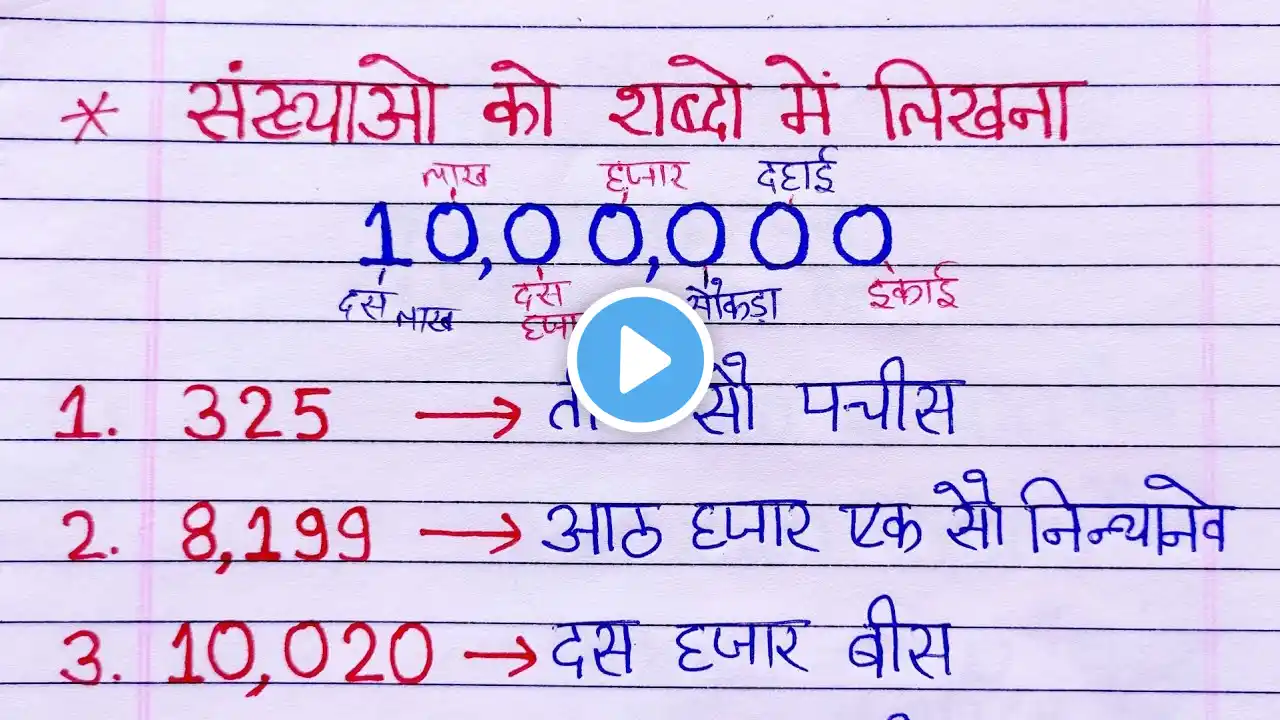 * संख्याओ को शब्दो में लिखना
लाख हजार दहाई
10,00,000
दस लाख दस सौकड़ा इकाई
1. 325 → सौ पचीस
2. 8,199 → आठ हजार एक सौ निन्यानेव
3. 10,020 → दस हजार बीस